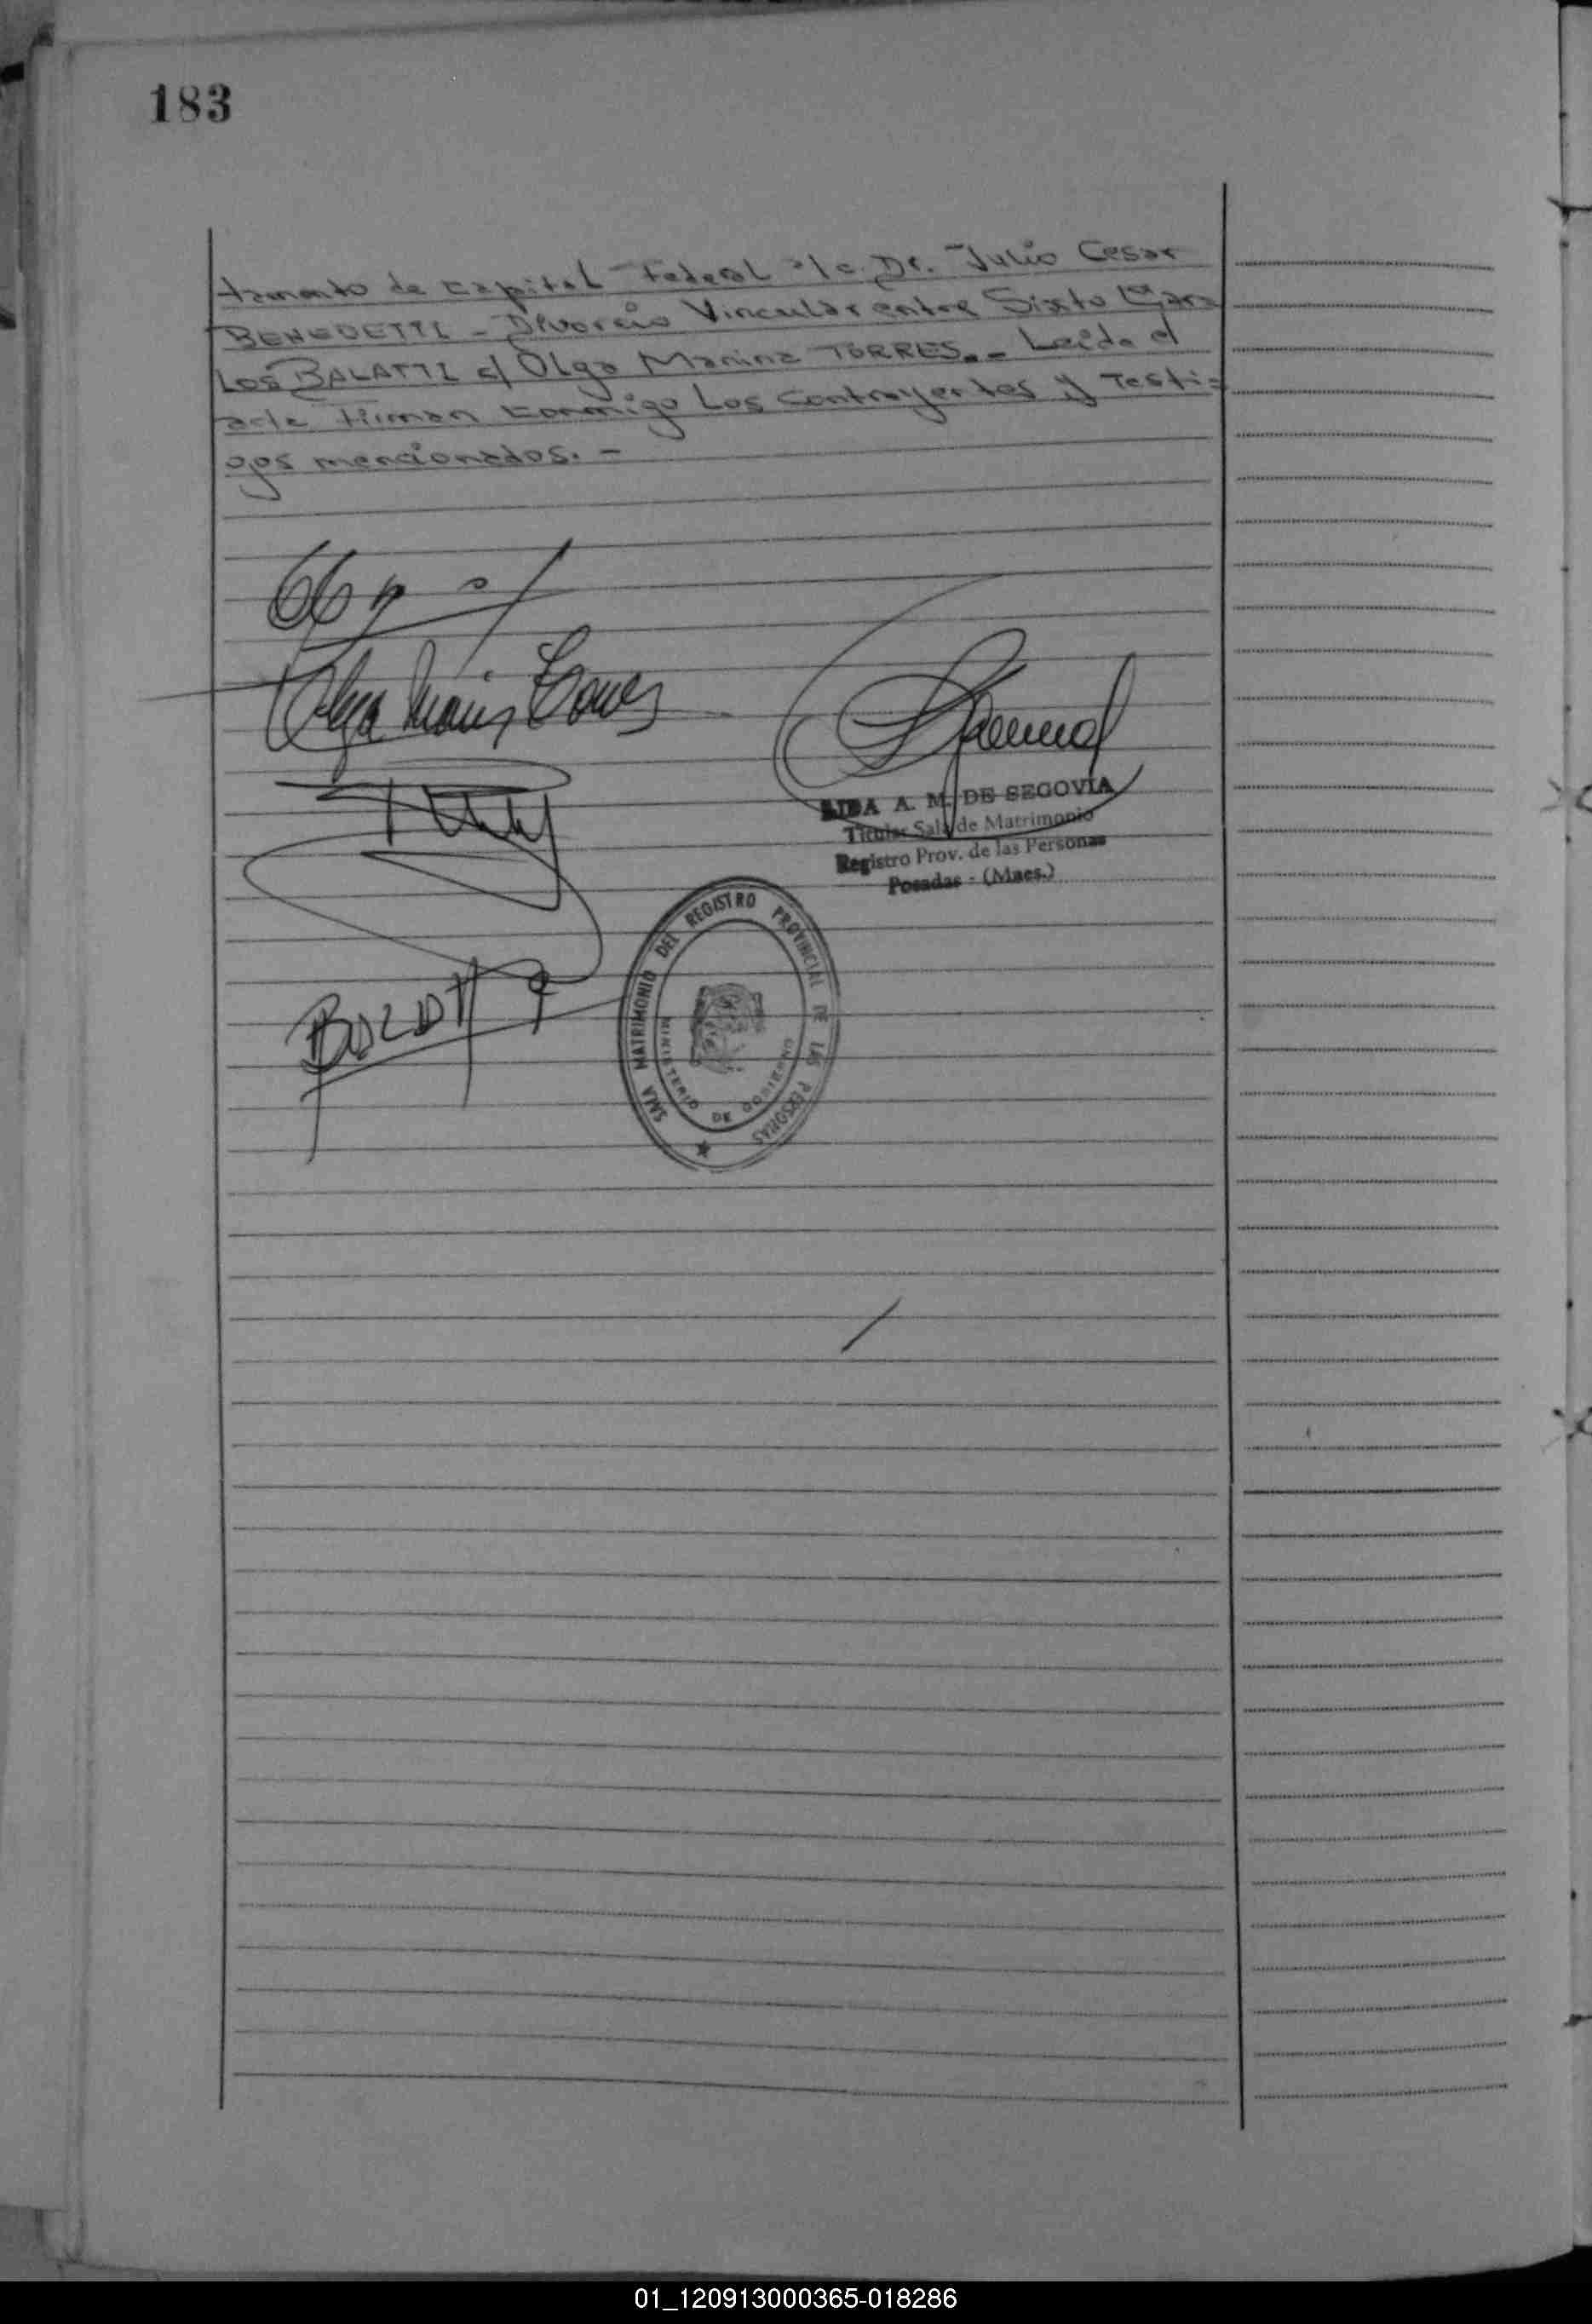 183
tamento de Capital Federal a/c. Dr. Julio Cesar
BENEDETTI - Divorcio Vincular entre Sixto
LOS BALATTI c/ Olga Marina TORRES.- Leída el
acta Firman conmigo Los Contrayentes y Testi=
gos mencionados. -
AIDA A. M. DE SEGOVIA
Titular Sala de Matrimonio
Registro Prov. de las Personas
Posadas - (Mnes.)
SALA MATRIMONIO DEL REGISTRO PROVINCIAL DE LAS PERSONAS
MINISTERIO DE GOBIERNO
01_120913000365-018286